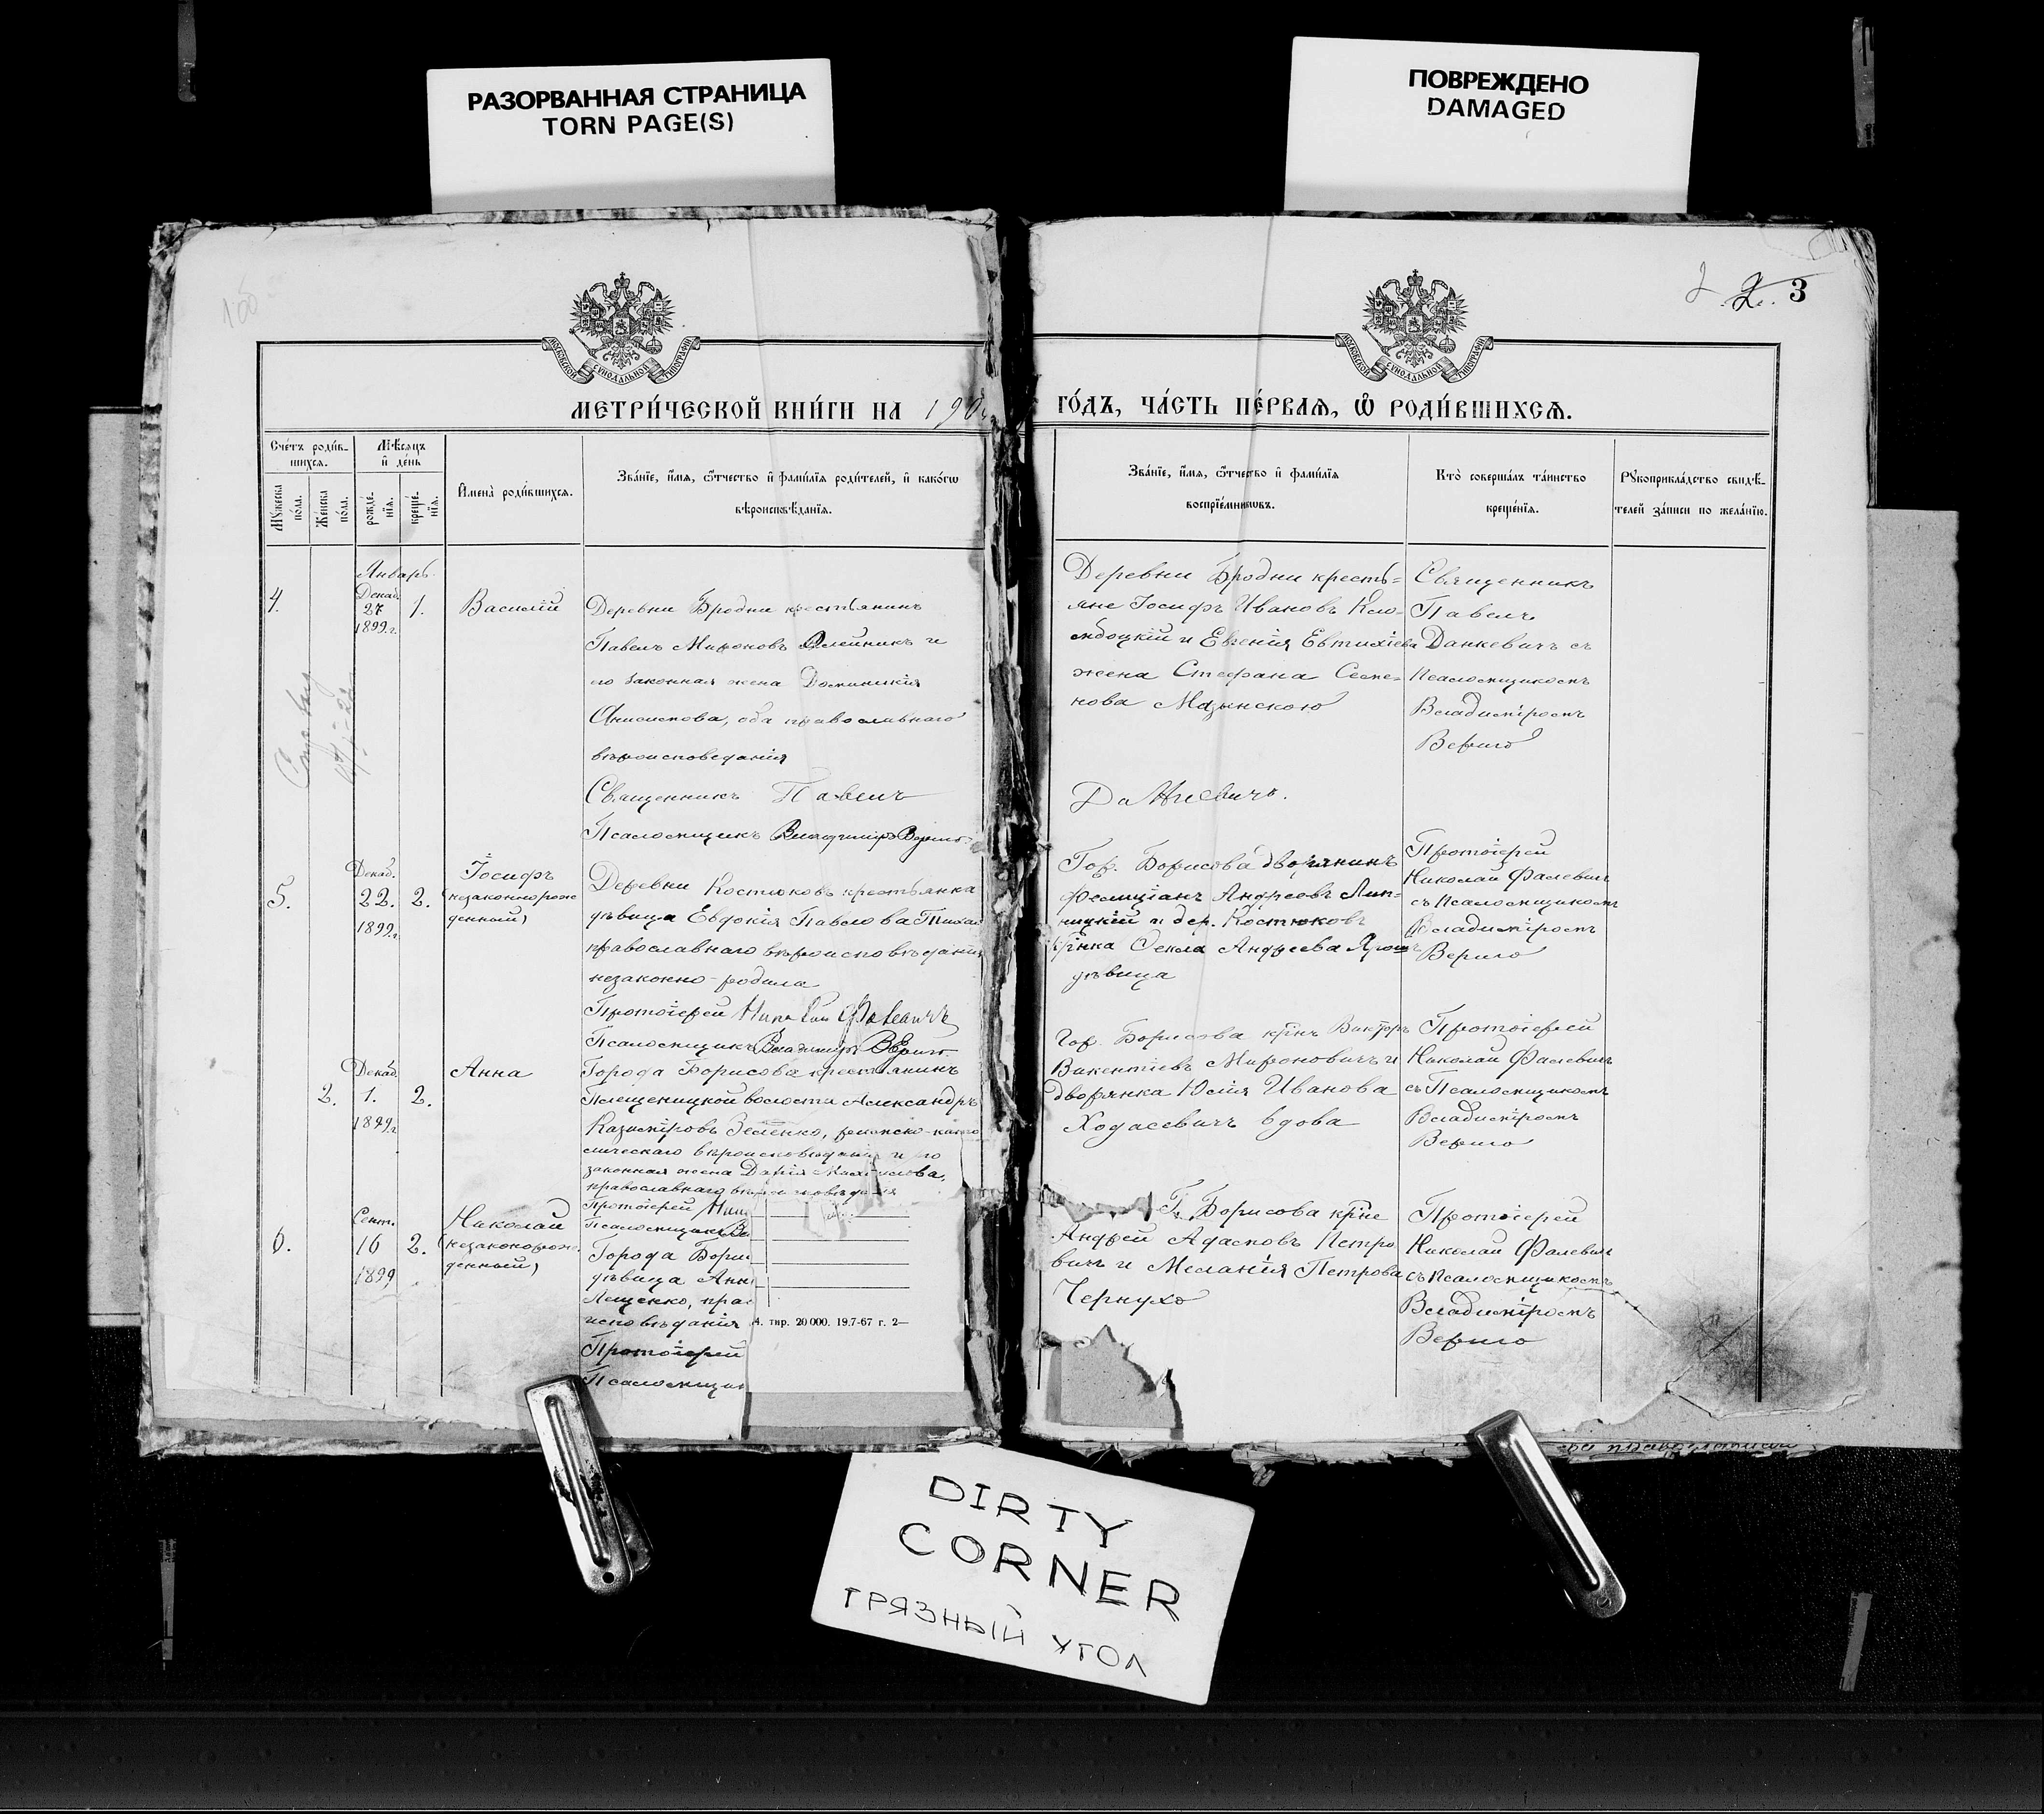 РАЗОРВАННАЯ СТРАНИЦА
TORN PAGE(S)
ПОВРЕЖДЕНО
DAMAGED
3
МОСКОВСКОЙ СѴНОДАЛЬНОЙ ТИПОГРАФІИ
МОСКОВСКОЙ СѴНОДАЛЬНОЙ ТИПОГРАФІИ
МЕТРИ́ЧЕСКОЙ КНИ́ГИ НА 190
ГО́ДЪ, ЧА́СТЬ ПЕ́РВАЯ, Ѡ҆ РОДИ́ВШИХСѦ.
Сче́тъ роди́в-
шихся.
Мѣ́сяцъ
и҆ де́нь
Мꙋ́жеска
по́ла.
Же́нска
по́ла.
рожде́-
нїѧ.
креще́-
нїѧ.
И҆мена̀ роди́вшихся.
Зва́нїе, и҆́мя, ѻ҆́тчество и҆ фами́лїя роди́телей, и҆ како́гѡ
вѣроисповѣ́данїя.
Зва́нїе, и҆́мя, ѻ҆́тчество и҆ фами́лїя
воспрїе́мникѡвъ.
Кто̀ соверша́лъ та́инство
креще́нїя.
Рꙋкоприкла́дство свидѣ́-
телей за́писи по жела́нїю.
Январь
4. Декаб. 27 1899 г. 1. Василій
Деревни Бродни крестьянинъ
Павелъ Мироновъ Олейникъ и
его законная жена Доминикія
Анисимова, оба православнаго
вѣроисповеданія
Священникъ Павелъ
Псаломщикъ Владиміръ Вериго
Деревни Бродни кресть=
яне Іосифъ Ивановъ
и Евгенія Евтихіева
жена Стефана Семе=
нова
Данкевичъ.
Священникъ
Павелъ
Данкевичъ съ
Псаломщикомъ
Владиміромъ
Вериго
5. Декаб. 22. 1899 г. 2. Іосифъ
(незаконнорож
денный)
Деревни Костюковъ крестьянка
дѣвица Евдокія Павлова
православнаго вѣроисповѣданія
незаконно-родила
Протоіерей Николай Фалевичъ
Псаломщикъ Владиміръ Вериго
Гор. Борисова дворянинъ
Фелиціанъ Андреевъ Лип=
ницкій и дер. Костюковъ
кр̃нка Фекла Андреева
дѣвица
Протоіерей
Николай Фалевичъ
съ Псаломщикомъ
Владиміромъ
Вериго
2. Декаб. 1. 1899 г. 2. Анна
Города Борисова крестьянинъ
Плещеницкой волости Александръ
Казиміровъ Зеленко, римско-като
лическаго вѣроисповѣданія и его
законная жена Дарія
православнаго вѣроисповѣданія
Протоіерей Ник
Псаломщикъ Вл
Гор. Борисова кр̃нъ Викторъ
Викентіевъ Мироновичъ и
дворянка Юлія Иванова
Ходасевичъ вдова
Протоіерей
Николай Фалевичъ
съ Псаломщикомъ
Владиміромъ
Вериго
6. Сент. 16 1899 2. Николай
(незаконорож
денный)
Города Бори
дѣвица Анн
Лещенко, прав
исповѣданія
Протоіерей
Псаломщик
4. тир. 20 000. 19.7-67 г. 2—
Г. Борисова кр̃не
Андрей Адамовъ Петро
вичъ и Меланія Петрова
Чернухо
Протоіерей
Николай Фалевичъ
съ Псаломщикомъ
Владиміромъ
Вериго
DIRTY
CORNER
ГРЯЗНЫЙ УГОЛ